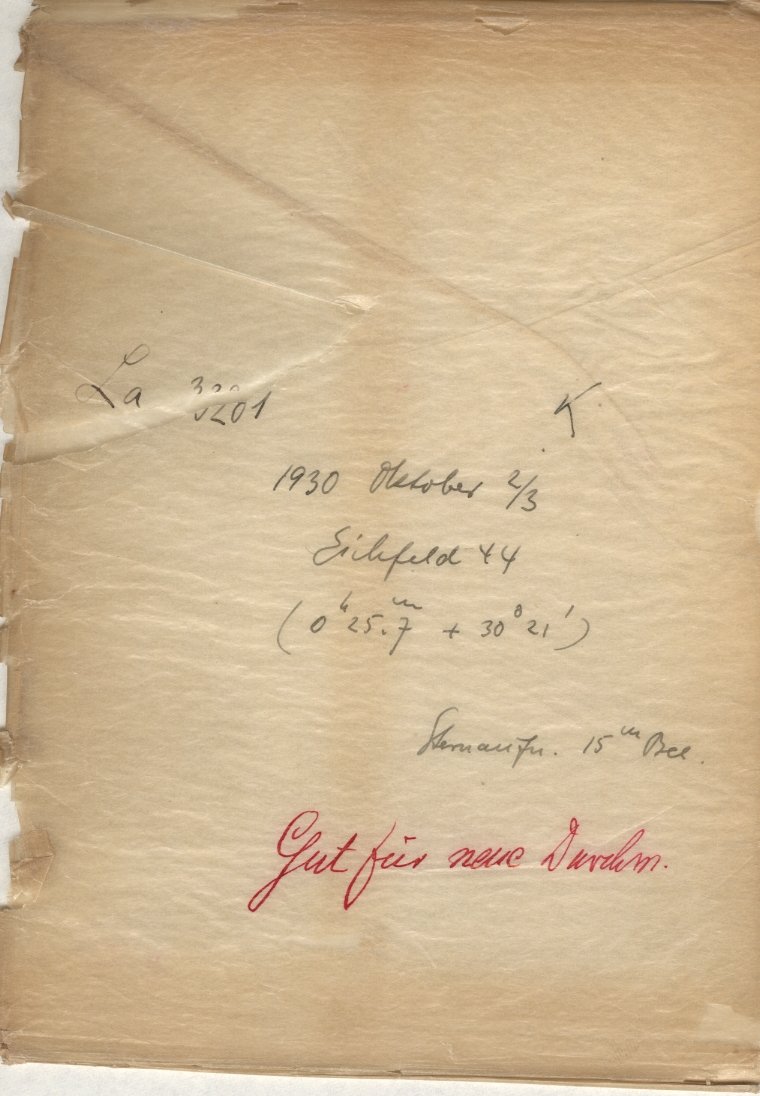 La 3201 K
1930 Oktober 2/3
Eichfeld 44
(0ʰ 25.7ᵐ + 30° 21')
Sternaufn. 15ᵐ Bel.
Gut für neue Durchm.